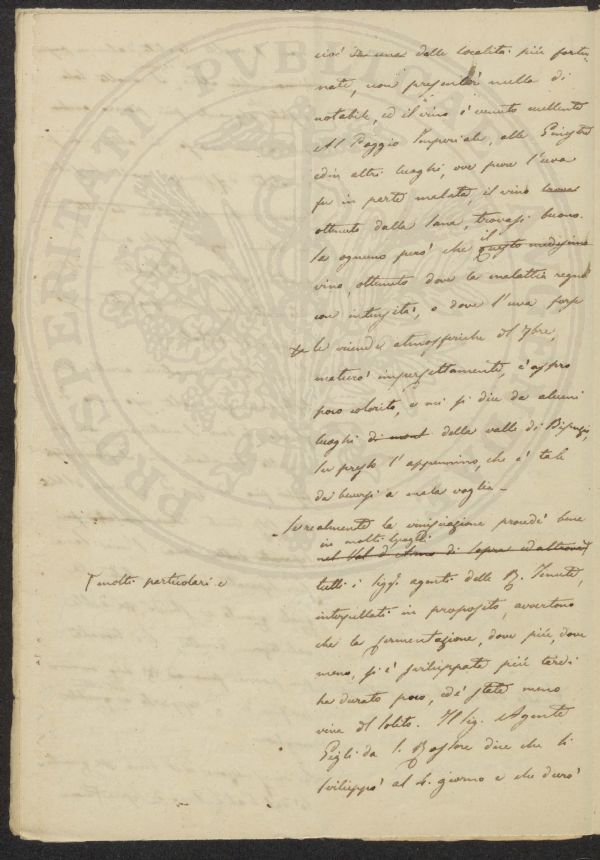 cioè in una delle località più fortu
nate, non presentò nulla di
notabile, ed il vino è venuto eccellente
Al Poggio Imperiale, alle Ginestre
ed in altri luoghi, ove pure l'uva
fu in parte malata, il vino
ottenuto dalla sana, trovasi buono.
Sa ognuno però che questo medesimo
il
vino, ottenuto dove la malattia regnò
con intensità, o dove l'uva forse
le vicende atmosferiche del 7bre,
maturò imperfettamente, è aspro
poco colorito, e mi si dice da alcuni
luoghi di mont della valle di
presso l'appennino, che è tale
da beversi a mala voglia –
Se realmente la vinificazione procedè bene
in molti luoghi
nel Val d'Arno di sopra ed altrove
molti particolari e
tutti i Sigg. agenti delle R. Tenute,
interpellati in proposito, avvertono
che la fermentazione, dove più, dove
meno, si è sviluppata più tardi
ha durato poco, ed è stata meno
viva del solito. Il Sig. Agente
Gigli da S. Rossore dice che si
sviluppò al 4. giorno e che durò
PROSPERITATI PUBLICAE